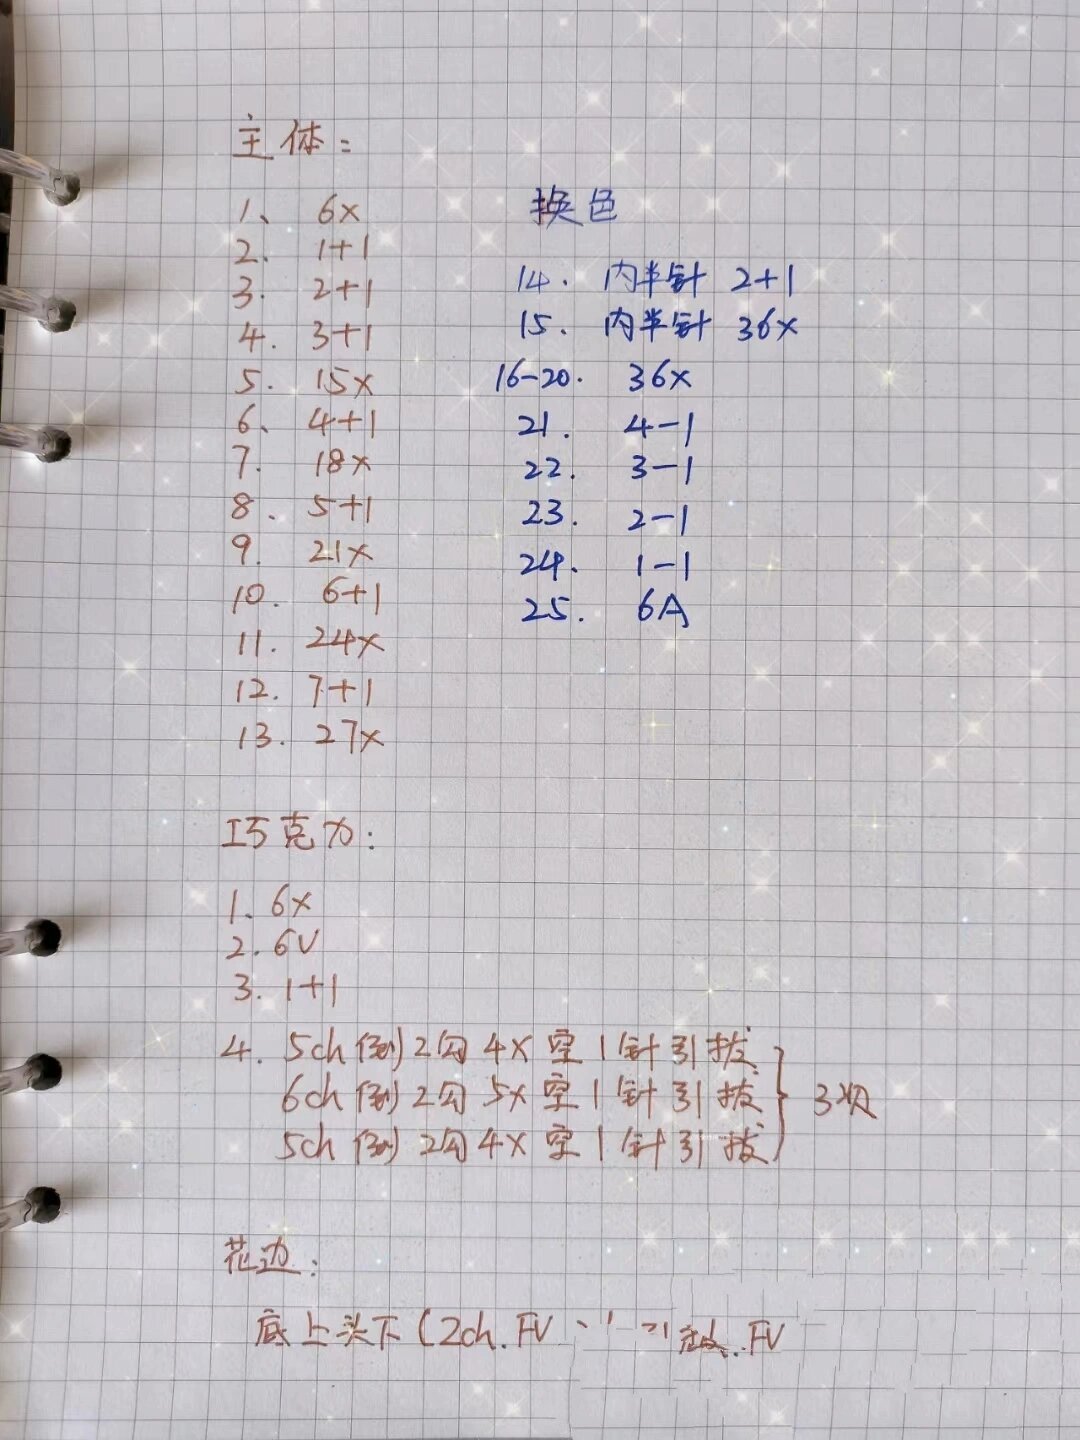 主体：
1、 6x
2. 1+1
3. 2+1
4. 3+1
5. 15x
6、 4+1
7. 18x
8、 5+1
9. 21x
10. 6+1
11. 24x
12. 7+1
13. 27x
换色
14. 内半针 2+1
15. 内半针 36x
16-20. 36x
21. 4-1
22. 3-1
23. 2-1
24. 1-1
25. 6A
巧克力：
1、6x
2. 6V
3. 1+1
4. 5ch 倒2勾4x空1针引拔
6ch 倒2勾5x空1针引拔
5ch 倒2勾4x空1针引拔
3次
花边：
底上头下(2ch.FV FV